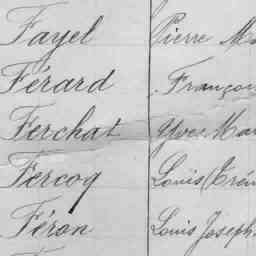 Fayel Pierre Ma
Férard Françoi
Ferchat Yves Mar
Fercoq Louis
Féron Louis Joseph